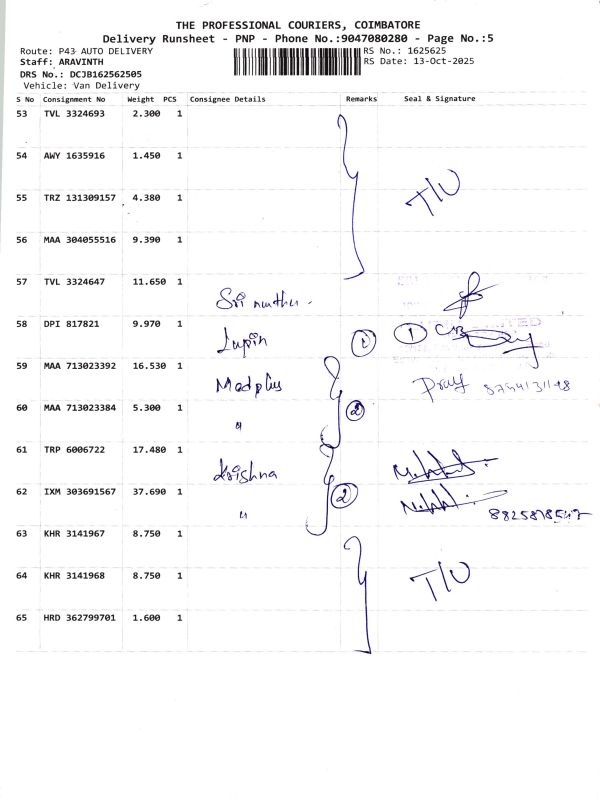 THE PROFESSIONAL COURIERS, COIMBATORE
Delivery Runsheet - PNP - Phone No.:9047080280 - Page No.:5
Route: P43 AUTO DELIVERY RS No.: 1625625
Staff: ARAVINTH RS Date: 13-Oct-2025
DRS No.: DCJB162562505
Vehicle: Van Delivery
S No Consignment No Weight PCS Consignee Details Remarks Seal & Signature
53 TVL 3324693 2.300 1
54 AWY 1635916 1.450 1
55 TRZ 131309157 4.380 1 T/U
56 MAA 304055516 9.390 1
57 TVL 3324647 11.650 1 Sri muthu.
58 DPI 817821 9.970 1 Lupin 1 1
59 MAA 713023392 16.530 1 Medplus
60 MAA 713023384 5.300 1 " 2
61 TRP 6006722 17.480 1 Krishna
62 IXM 303691567 37.690 1 " 2
63 KHR 3141967 8.750 1
64 KHR 3141968 8.750 1 T/U
65 HRD 362799701 1.600 1